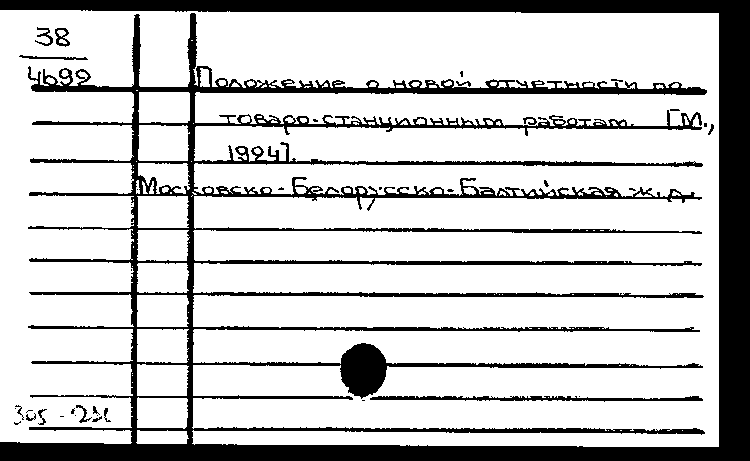 38
4699
Положение о новой отчетности по
товаро-станционным работам. [М.,
1924].
Московско-Белорусско-Балтийская ж.д.
305 -